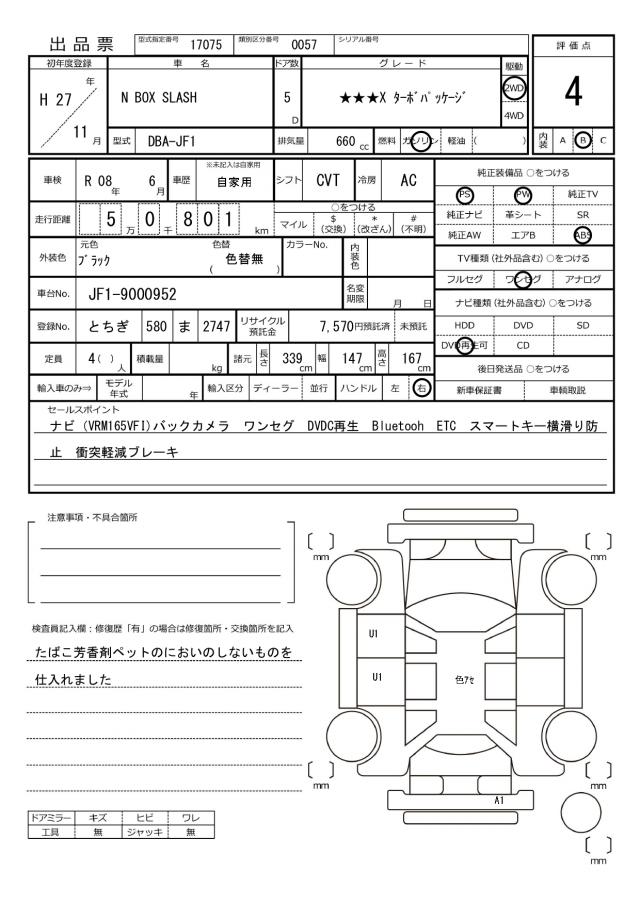 出品票 型式指定番号 17075 類別区分番号 0057 シリアル番号
評価点
4
初年度登録 車名 ドア数 グレード 駆動
H 27 年 11 月 N BOX SLASH 5 D ★★★X ﾀｰﾎﾞﾊﾟｯｹｰｼﾞ 2WD 4WD
型式 DBA-JF1 排気量 660 cc 燃料 ガソリン 軽油 ( )
内装 A B C
車検 R 08 年 6 月 車歴 ※未記入は自家用 自家用 シフト CVT 冷房 AC
走行距離 5 万 0 千 8 0 1 km ○をつける
マイル $ (交換) * (改ざん) # (不明)
外装色 元色 ﾌﾞﾗｯｸ 色替 ( 色替無 ) カラーNo. 内装色
車台No. JF1-9000952 名変期限 月 日
登録No. とちぎ 580 ま 2747 リサイクル預託金 7,570円預託済 未預託
定員 4( ) 人 積載量 kg 諸元 長さ 339 cm 幅 147 cm 高さ 167 cm
輸入車のみ⇒ モデル年式 年 輸入区分 ディーラー 並行 ハンドル 左 右
純正装備品 ○をつける
PS PW 純正TV
純正ナビ 革シート SR
純正AW エアB ABS
TV種類(社外品含む)○をつける
フルセグ ワンセグ アナログ
ナビ種類(社外品含む)○をつける
HDD DVD SD
DVD再生可 CD
後日発送品 ○をつける
新車保証書 車輌取説
セールスポイント
ナビ(VRM165VFI)バックカメラ ワンセグ DVDC再生 Bluetooh ETC スマートキー横滑り防
止 衝突軽減ブレーキ
注意事項・不具合箇所
検査員記入欄：修復歴「有」の場合は修復箇所・交換箇所を記入
たばこ芳香剤ペットのにおいのしないものを
仕入れました
ドアミラー キズ ヒビ ワレ
工具 無 ジャッキ 無
[ ] mm
[ ] mm
U1
U1
色ｱｾ
[ ] mm
[ ] mm
A1
[ ] mm